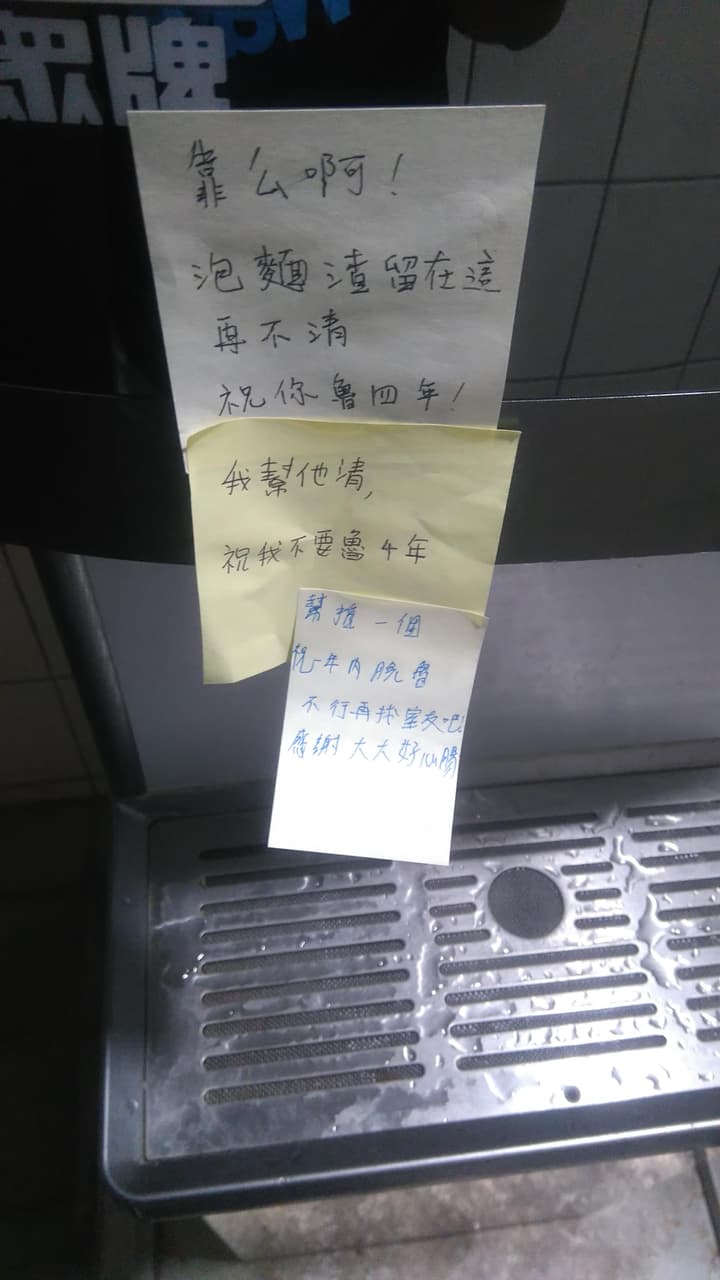 眾牌
靠么啊!
泡麵渣留在這
再不清
祝你魯四年!
我幫他清,
祝我不要魯4年
幫推一個
祝一年內脫魯
不行再找室友吧!
感謝大大好心腸